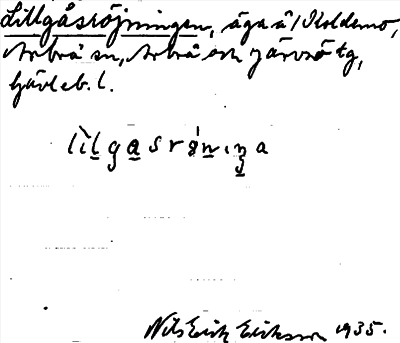 Lillgåsröjningen, äga å /Koldemo,
Arbrå sn, Arbrå och Järvsö tg,
Gävleb. l.
Nils Erik Eriksson 1935.